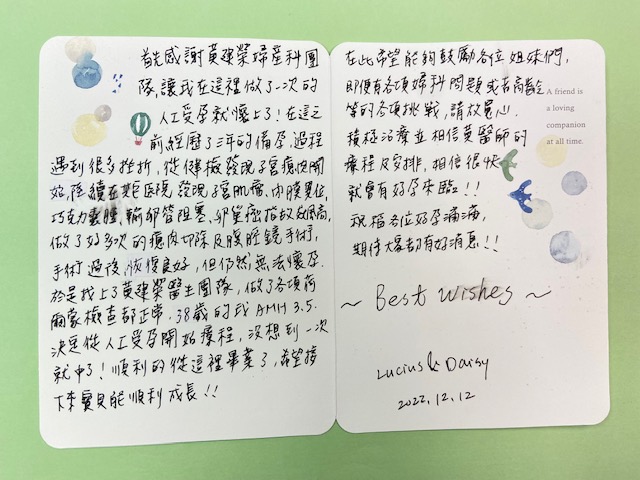 首先感謝黃建榮婦產科團
隊,讓我在這裡做了一次的
人工受孕就懷上了!在這之
前經歷了三年的備孕,過程
遇到很多挫折,從健檢發現子宮瘜肉開
始,陸續在醫院發現子宮肌瘤、內膜異位、
巧克力囊腫、輸卵管阻塞、卵巢癌指數偏高,
做了好多次的瘜肉切除及腹腔鏡手術,
手術過後,恢復良好,但仍然無法懷孕.
於是找上了黃建榮醫生團隊,做了各項荷
爾蒙檢查都正常,38歲的我AMH 3.5.
決定從人工受孕開始療程,沒想到一次
就中了!順利的從這裡畢業了,希望接
下來寶貝能順利成長!!
在此希望能夠鼓勵各位姐妹們,
即便有各項婦科問題或者高齡
等的各項挑戰,請放寬心.
積極治療並相信黃醫師的
療程及安排,相信很快
就會有好孕來臨!!
祝福各位好孕滿滿,
期待大家都有好消息!!
~ Best Wishes ~
Lucius & Daisy
2022.12.12
A friend is
a loving
companion
at all time.